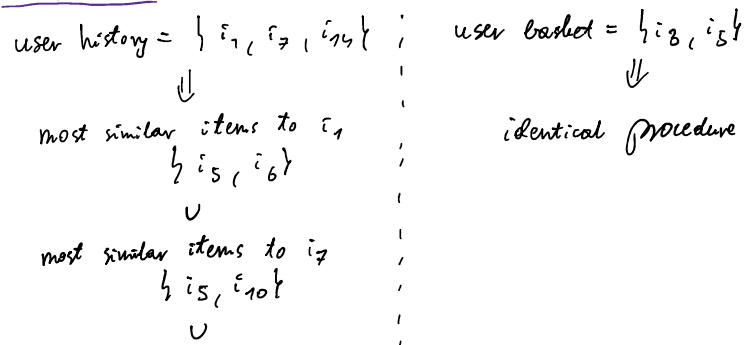 user history = { i1, i7, i14 }
⇓
most similar items to i1
{ i5, i6 }
∪
most similar items to i7
{ i5, i10 }
∪
user basket = { i3, i5 }
⇓
identical procedure